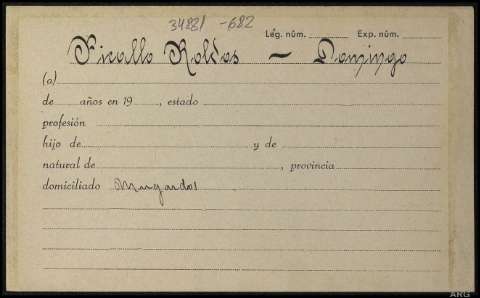 34881 - 682
Lég. núm. Exp. núm.
Picallo Roldos — Domingo
(a)
de años en 19 , estado
profesión
hijo de y de
natural de , provincia
domiciliado Mugardos
ARG